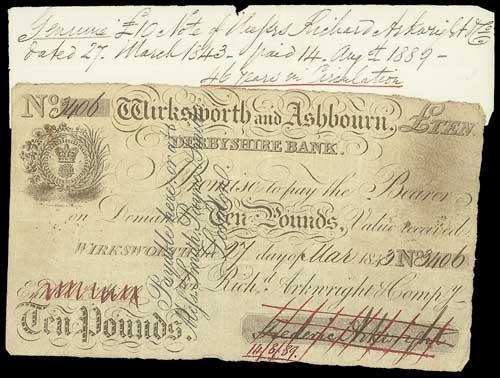 Genuine £10 Note of Messrs Richard Arkwright & Co
dated 27. March 1843 - paid 14. Augst 1889 -
46 years in Circulation
No. 3406 Wirksworth and Ashbourn. £TEN.
DERBYSHIRE BANK.
Promise to pay the Bearer
on Demand Ten Pounds, Value received
WIRKSWORTH 27 day of Mar 1843 No. 3406
Richd. Arkwright & Compy.
Entd
Ten Pounds.
Frederic Arkwright
14/8/89.
Payable here or at
Messrs Smith Payne &
London